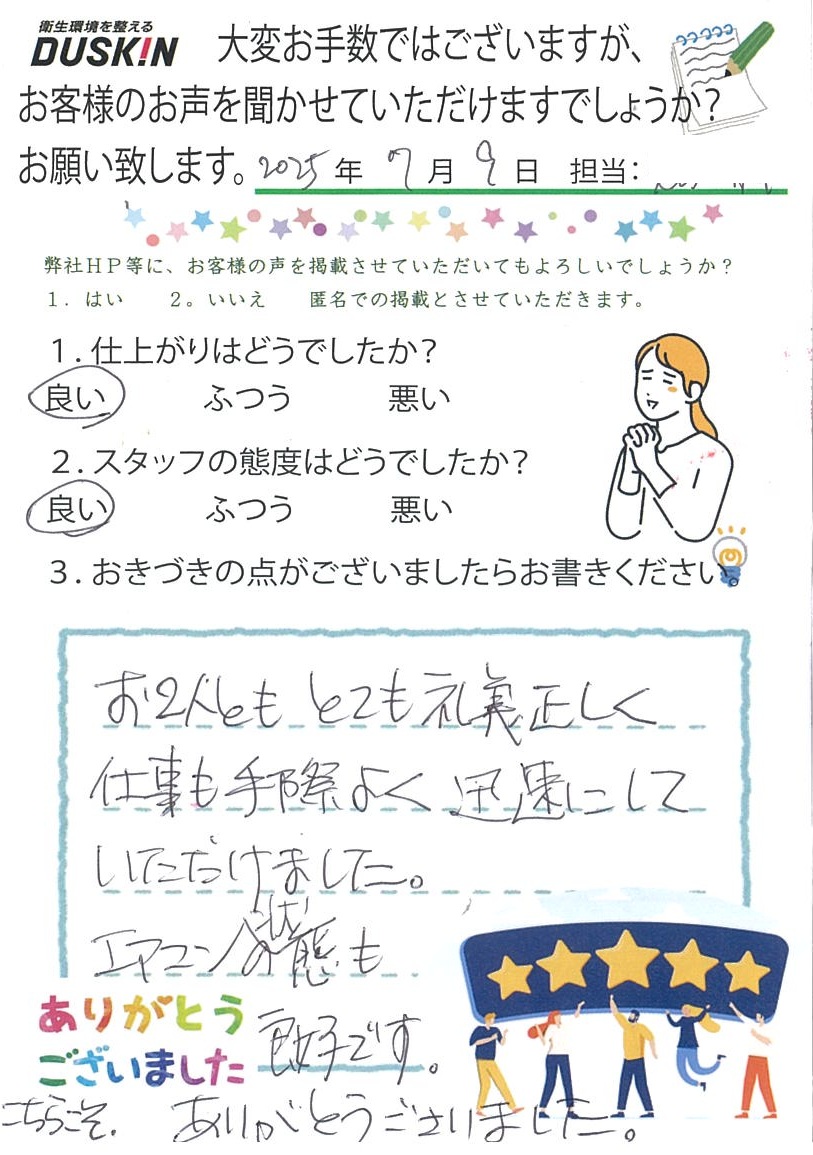 衛生環境を整える
DUSKIN
大変お手数ではございますが、
お客様のお声を聞かせていただけますでしょうか?
お願い致します。2025年 7月 9日 担当:
弊社HP等に、お客様の声を掲載させていただいてもよろしいでしょうか?
1. はい 2。いいえ 匿名での掲載とさせていただきます。
1. 仕上がりはどうでしたか?
良い ふつう 悪い
2. スタッフの態度はどうでしたか?
良い ふつう 悪い
3. おきづきの点がございましたらお書きください。
お2人とも とても礼義正しく
仕事も手際よく 迅速にして
いただけました。
エアコンの状態も
良好です。
ありがとう
ございました
こちらこそ. ありがとうございました。